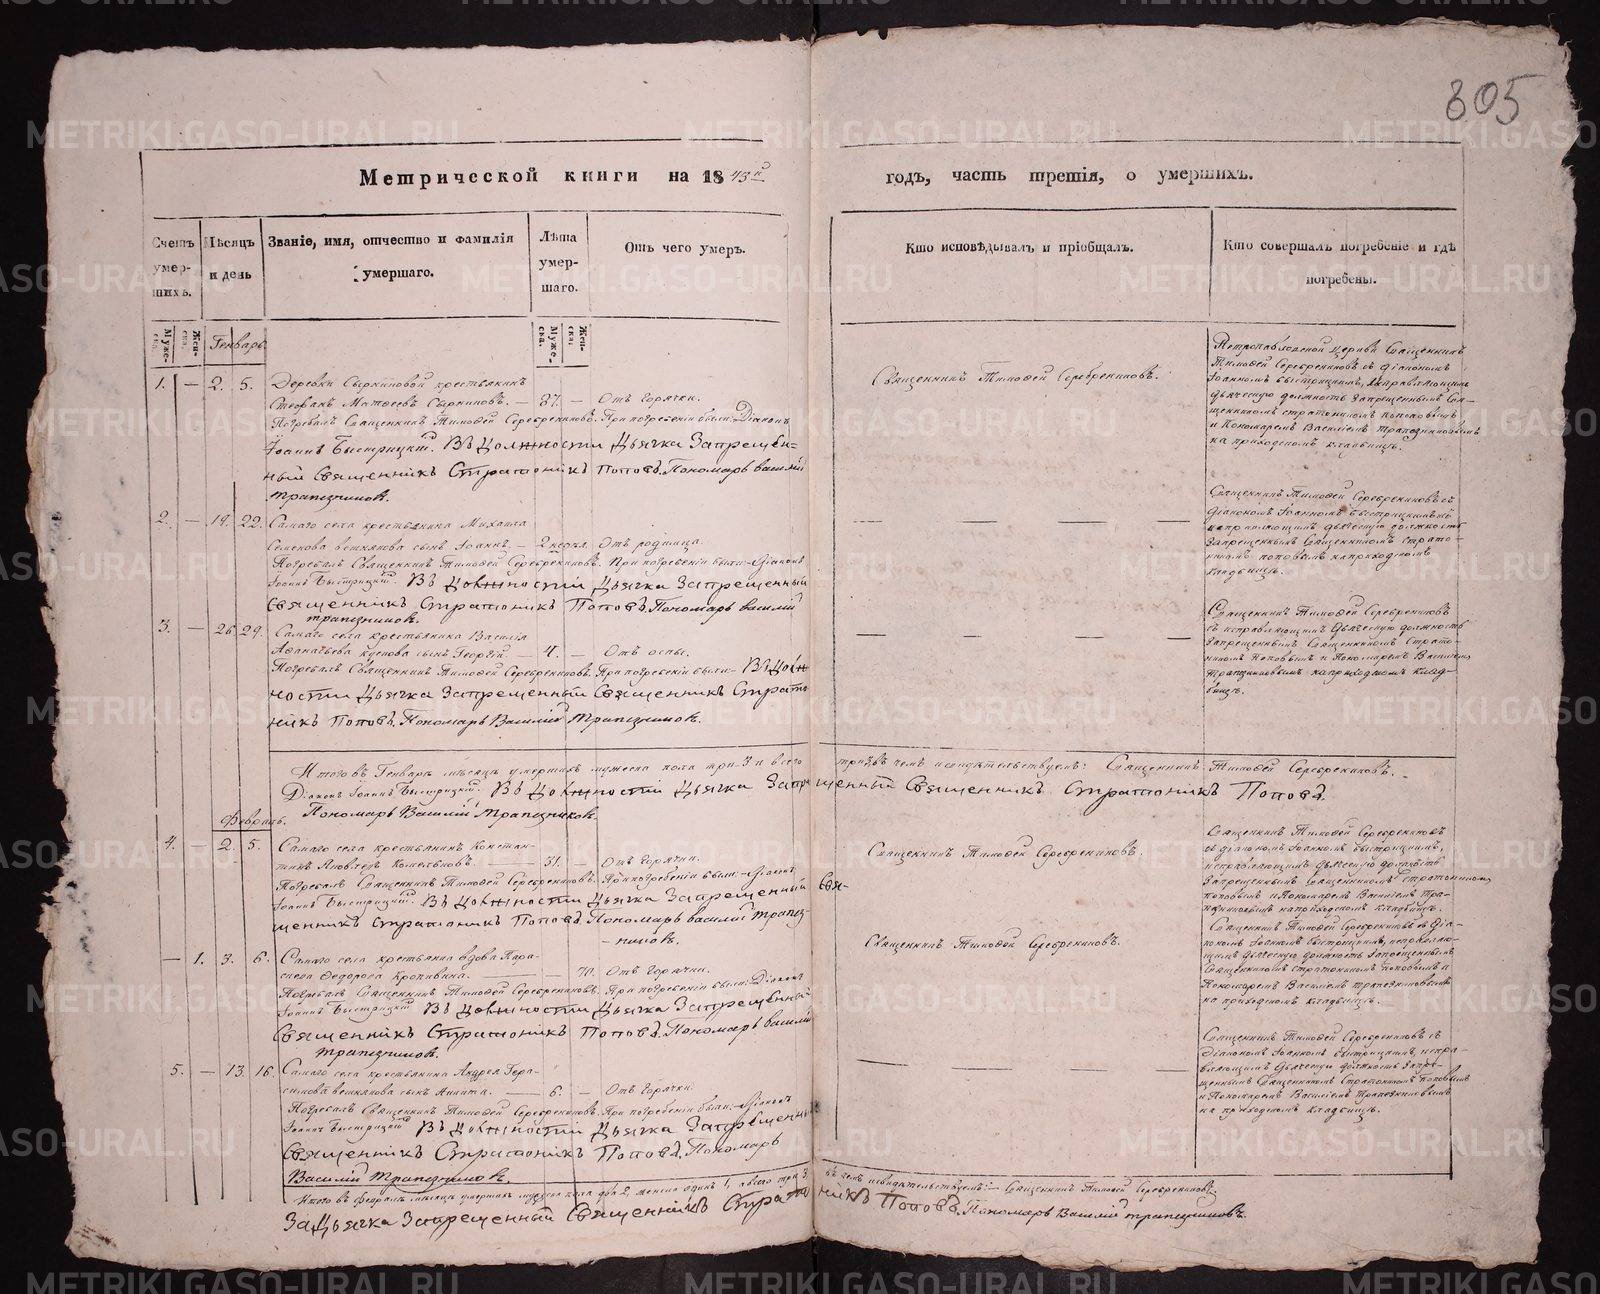 805
Метрической книги на 1843й годъ, часть третія, о умершихъ.
Счетъ умер-шихъ.
Мѣсяцъ и день
Званіе, имя, отчество и фамилія умершаго.
Лѣта умер-шаго.
Отъ чего умеръ.
Кто исповѣдывалъ и пріобщалъ.
Кто совершалъ погребеніе и гдѣ погребены.
Муже-ска.
Жен-ска.
Генварь
Муже-ска.
Жен-ска.
1. — 2. 5. Деревни Сыркиновой крестьянинъ
Стефанъ Матвеевъ Сыркиновъ. — 87. — Отъ горячки.
Погребалъ Священникъ Тимофей Серебрениковъ. При погребеніи были: Діаконъ
Іоаннъ Быстрицкій. Въ должности Дьячка Запрещен-
ный Священникъ Стратоникъ Поповъ. Пономарь василій
трапезниковъ.
Священникъ Тимофей Серебрениковъ.
Петропавловской церкви Священникъ
Тимофей Серебрениковъ съ діакономъ
Іоанномъ Быстрицкимъ, исправляющимъ
дьяческую должность Запрещеннымъ Свя-
щенникомъ стратоникомъ поповымъ
и Пономаремъ Василіемъ Трапезниковымъ
на приходскомъ кладбищѣ.
2. — 19. 22. Самаго села крестьянина Михаила
Семенова сынъ Іоаннъ. — 2 недѣл. Отъ родимца.
Погребалъ Священникъ Тимофей Серебрениковъ. При погребеніи были: Діаконъ
Іоаннъ Быстрицкій. Въ должности Дьячка Запрещенный
Священникъ Стратоникъ Поповъ. Пономарь василій
трапезниковъ.
Священникъ Тимофей Серебрениковъ съ
діакономъ Іоанномъ Быстрицкимъ
исправляющимъ дьяческую должность
Запрещеннымъ Священникомъ страто-
никомъ поповымъ на приходскомъ
кладбищѣ.
3. — 26. 29. Самаго села крестьянина Василія
сынъ Георгій. — 4. — Отъ оспы.
Погребалъ Священникъ Тимофей Серебрениковъ. При погребеніи были — Въ долж-
ности Дьячка Запрещенный Священникъ Страто
никъ Поповъ. Пономарь Василій трапезниковъ.
Священникъ Тимофей Серебрениковъ
съ исправляющимъ дьяческую должность
Запрещеннымъ Священникомъ Страто-
никомъ Поповымъ и Пономаремъ Василіемъ
Трапезниковымъ на приходскомъ клад-
бищѣ.
Итого въ Генварѣ мѣсяцѣ умершихъ мужеска пола три. 3 и всего три, въ чемъ и свидѣтельствуемъ: Священникъ Тимофей Серебрениковъ.
Діаконъ Іоаннъ Быстрицкій. Въ должности Дьячка Запрещенный Священникъ Стратоникъ Поповъ.
Пономарь Василій трапезниковъ.
Февраль.
4. — 2. 5. Самаго села крестьянинъ Констан-
тинъ Яковлевъ — 31. — Отъ горячки.
Погребалъ Священникъ Тимофей Серебрениковъ. При погребеніи были: Діаконъ
Іоаннъ Быстрицкій. Въ должности Дьячка Запрещенный Свя-
щенникъ Стратоникъ Поповъ. Пономарь василій трапез-
никовъ.
Священникъ Тимофей Серебрениковъ.
Священникъ Тимофей Серебрениковъ
съ діакономъ Іоанномъ Быстрицкимъ,
исправляющимъ дьяческую должность
Запрещеннымъ Священникомъ Стратоникомъ
поповымъ и Пономаремъ Василіемъ Тра-
пезниковымъ на приходскомъ кладбищѣ.
— 1. 3. 6. Самаго села крестьянка вдова Пара-
скева Федорова Кропивина. — 70. Отъ горячки.
Погребалъ Священникъ Тимофей Серебрениковъ. При погребеніи были: Діаконъ
Іоаннъ Быстрицкій. Въ должности Дьячка Запрещенный
Священникъ Стратоникъ Поповъ. Пономарь василій
трапезниковъ.
Священникъ Тимофей Серебрениковъ.
Священникъ Тимофей Серебрениковъ съ діа-
кономъ Іоанномъ Быстрицкимъ, исправляю-
щимъ дьяческую должность Запрещеннымъ
Священникомъ стратоникомъ поповымъ и
Пономаремъ Василіемъ трапезниковымъ
на приходскомъ кладбищѣ.
5. — 13. 16. Самаго села крестьянина Андрея Гера-
симова сынъ Никита. — 6. — Отъ горячки.
Погребалъ Священникъ Тимофей Серебрениковъ. При погребеніи были: Діаконъ
Іоаннъ Быстрицкій Въ должности Дьячка Запрещенный
Священникъ Стратоникъ Поповъ. Пономарь
Василій трапезниковъ.
Священникъ Тимофей Серебрениковъ съ
Діакономъ Іоанномъ Быстрицкимъ, испра-
вляющимъ дьяческую должность Запре-
щеннымъ Священникомъ Стратоникомъ Поповымъ
и Пономаремъ Василіемъ Трапезниковымъ
на приходскомъ кладбищѣ.
Итого въ Февралѣ мѣсяцѣ умершихъ мужеска пола два 2, женска одинъ 1, а всего три 3, въ чемъ и свидѣтельствуемъ: — Священникъ Тимофей Серебрениковъ.
За Дьячка Запрещенный Священникъ Стратоникъ Поповъ. Пономарь Василій трапезниковъ.
METRIKI.GASO-URAL.RU